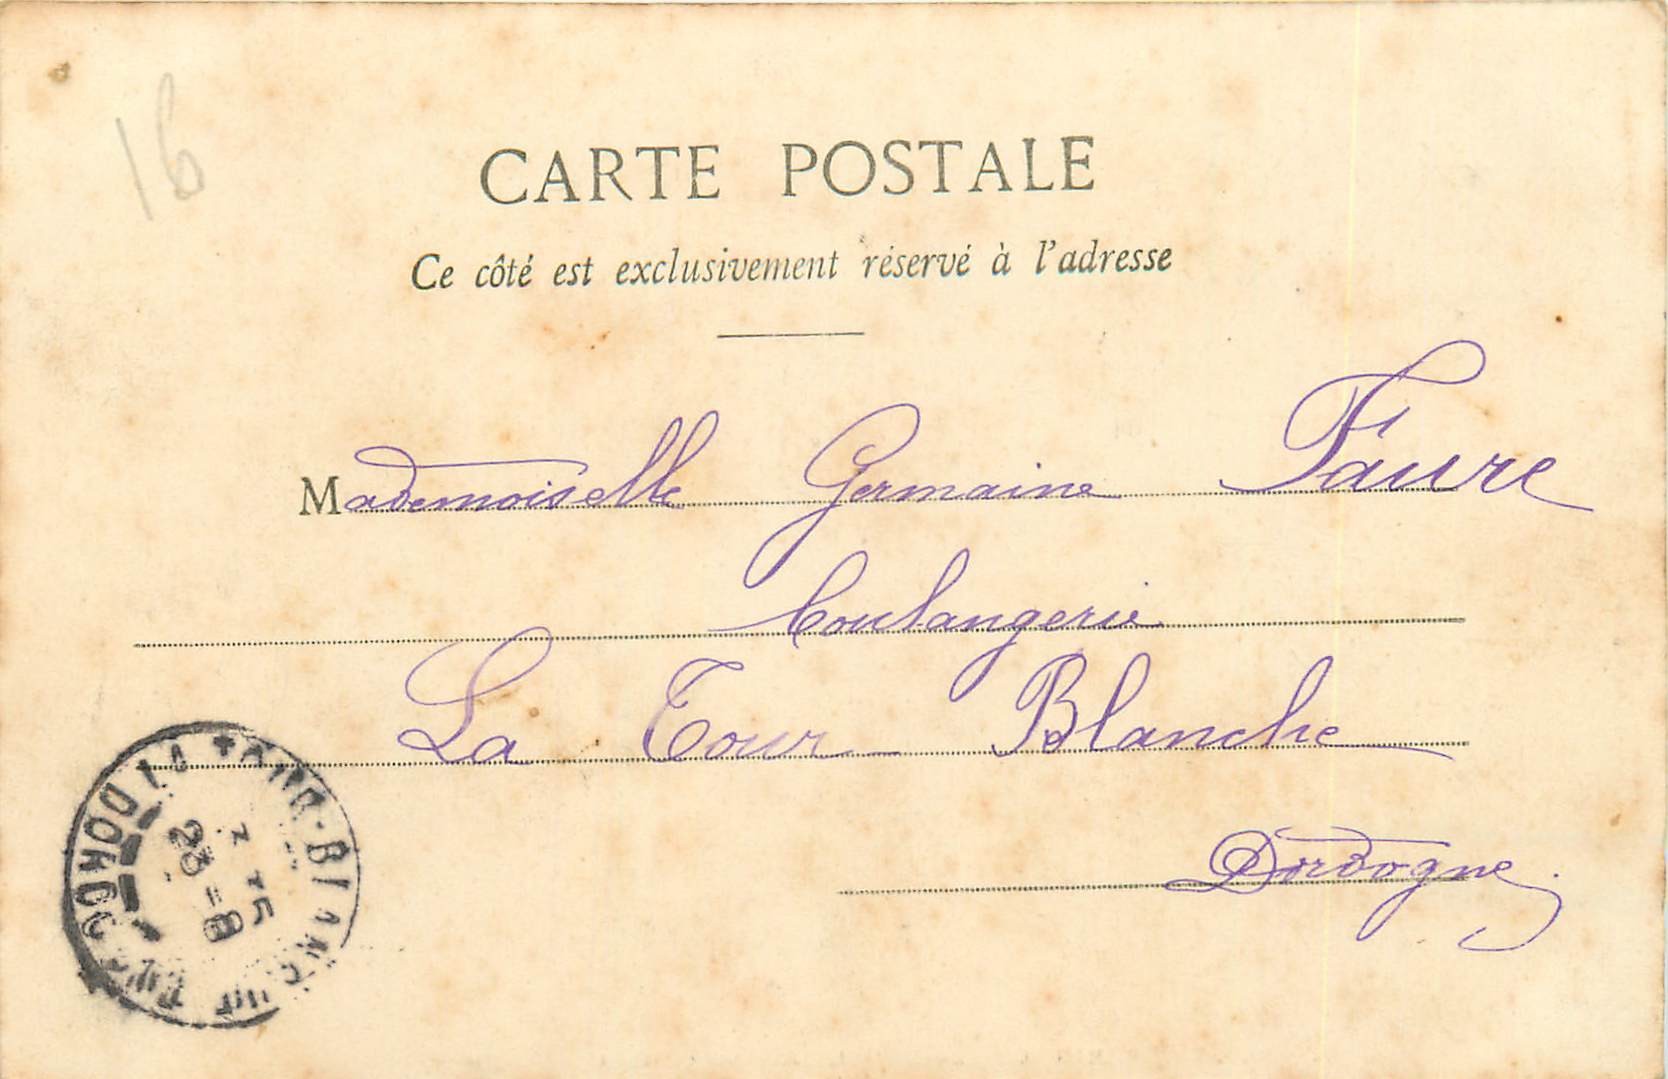 16
CARTE POSTALE
Ce côté est exclusivement réservé à l'adresse
Mademoiselle Germaine Faure
boulangerie
La Tour Blanche
Dordogne
LA TOUR-BLANCHE
DORDOGNE
23 -8